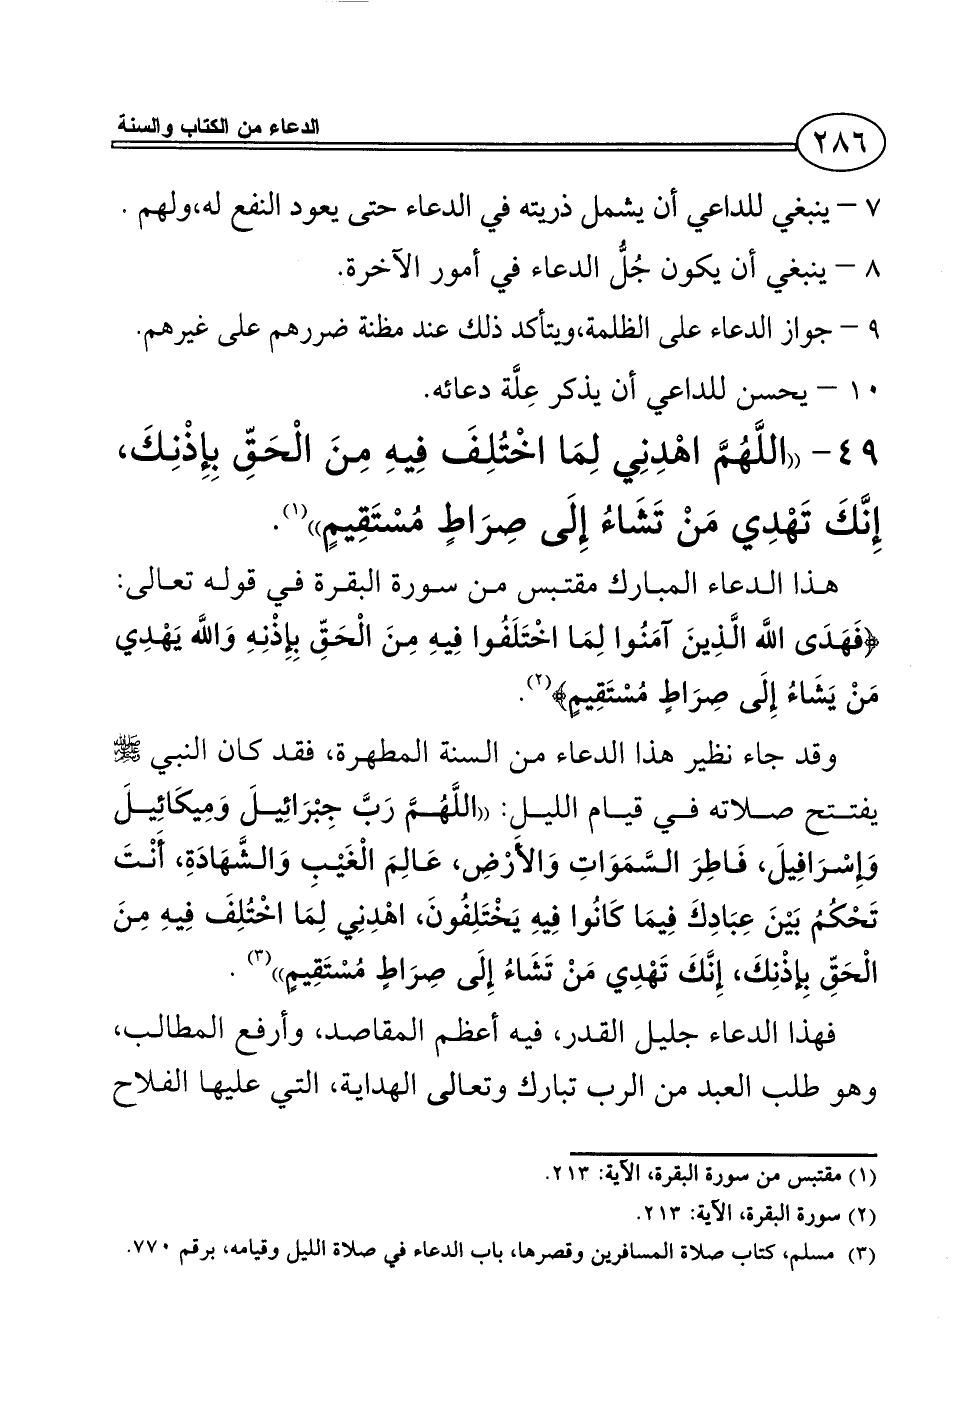 الدعاء من الكتاب والسنة
٢٨٦
٧ – ينبغي للداعي أن يشمل ذريته في الدعاء حتى يعود النفع له،ولهم .
٨ – ينبغي أن يكون جُلُّ الدعاء في أمور الآخرة.
٩ – جواز الدعاء على الظلمة،ويتأكد ذلك عند مظنة ضررهم على غيرهم.
١٠ – يحسن للداعي أن يذكر عِلَّة دعائه.
٤٩- ((اللَّهُمَّ اهْدِنِي لِمَا اخْتُلِفَ فِيهِ مِنَ الْحَقِّ بِإِذْنِكَ،
إِنَّكَ تَهْدِي مَنْ تَشَاءُ إِلَى صِرَاطٍ مُسْتَقِيمٍ))(١).
هذا الدعاء المبارك مقتبس من سورة البقرة في قوله تعالى:
﴿فَهَدَى الله الَّذِينَ آمَنُوا لِمَا اخْتَلَفُوا فِيهِ مِنَ الْحَقِّ بِإِذْنِهِ وَالله يَهْدِي
مَنْ يَشَاءُ إِلَى صِرَاطٍ مُسْتَقِيمٍ﴾(٢).
وقد جاء نظير هذا الدعاء من السنة المطهرة، فقد كان النبي ﷺ
يفتتح صلاته في قيام الليل: ((اللَّهُمَّ رَبَّ جِبْرَائِيلَ وَمِيكَائِيلَ
وَإِسْرَافِيلَ، فَاطِرَ السَّمَوَاتِ وَالأَرْضِ، عَالِمَ الْغَيْبِ وَالشَّهَادَةِ، أَنْتَ
تَحْكُمُ بَيْنَ عِبَادِكَ فِيمَا كَانُوا فِيهِ يَخْتَلِفُونَ، اهْدِنِي لِمَا اخْتُلِفَ فِيهِ مِنَ
الْحَقِّ بِإِذْنِكَ، إِنَّكَ تَهْدِي مَنْ تَشَاءُ إِلَى صِرَاطٍ مُسْتَقِيمٍ))(٣) .
فهذا الدعاء جليل القدر، فيه أعظم المقاصد، وأرفع المطالب،
وهو طلب العبد من الرب تبارك وتعالى الهداية، التي عليها الفلاح
(١) مقتبس من سورة البقرة، الآية: ٢١٣.
(٢) سورة البقرة، الآية: ٢١٣.
(٣) مسلم، كتاب صلاة المسافرين وقصرها، باب الدعاء في صلاة الليل وقيامه، برقم ٧٧٠.